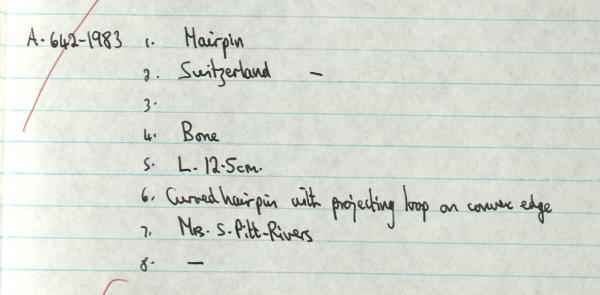 A.642-1983 1. Hairpin
2. Switzerland —
3.
4. Bone
5. L. 12.5cm.
6. Curved hairpin with projecting loop on convex edge
7. Mrs. S. Pitt-Rivers
8. —